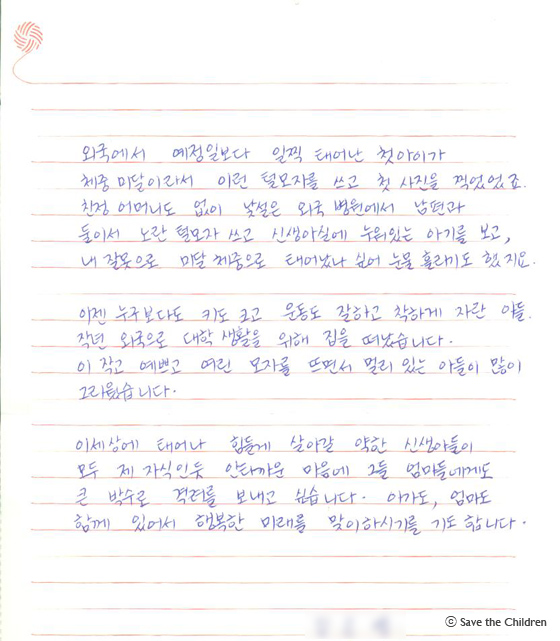 외국에서 예정일보다 일찍 태어난 첫아이가
체중 미달이라서 이런 털모자를 쓰고 첫 사진을 찍었었죠.
친정 어머니도 없이 낯설은 외국 병원에서 남편과
둘이서 노란 털모자 쓰고 신생아실에 누워있는 아기를 보고,
내 잘못으로 미달 체중으로 태어났나 싶어 눈물 흘리기도 했지요.
이젠 누구보다도 키도 크고 운동도 잘하고 착하게 자란 아들.
작년 외국으로 대학 생활을 위해 집을 떠났습니다.
이 작고 예쁘고 여린 모자를 뜨면서 멀리 있는 아들이 많이
그리웠습니다.
이세상에 태어나 힘들게 살아갈 약한 신생아들이
모두 제 자식인듯 안타까운 마음에 그들 엄마들에게도
큰 박수로 격려를 보내고 싶습니다. 아가도, 엄마도
함께 있어서 행복한 미래를 맞이하시기를 기도합니다.
ⓒ Save the Children